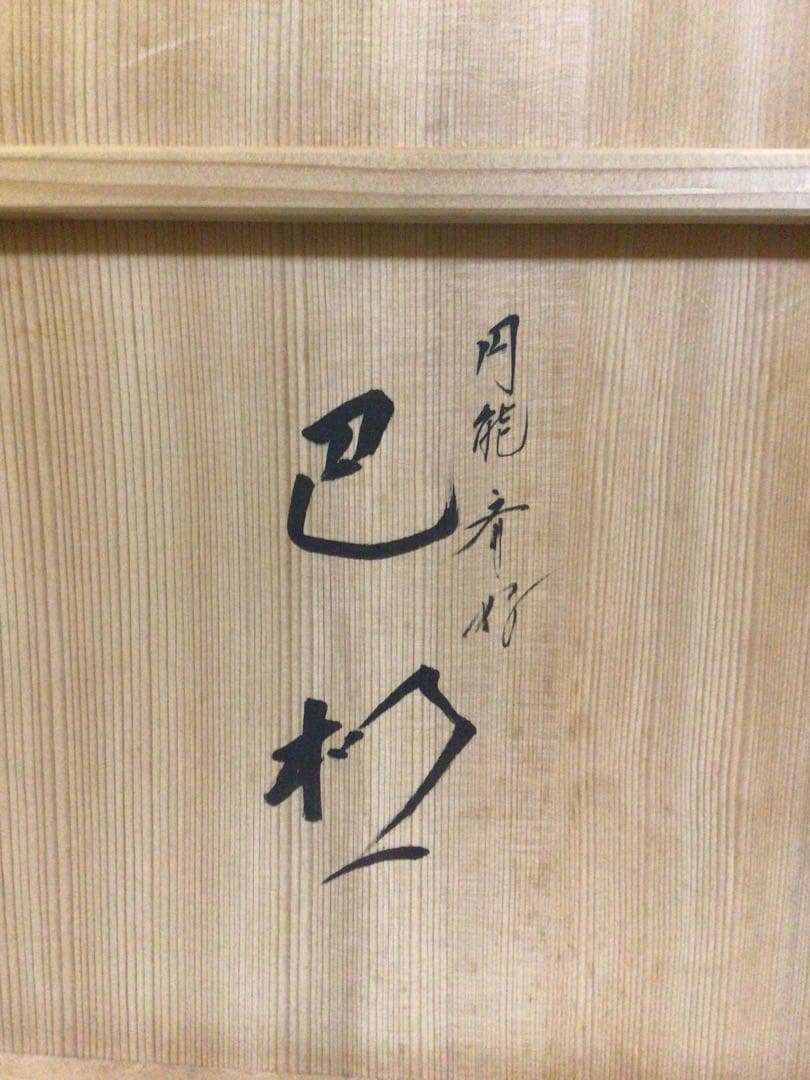 円能斎好
巴棚